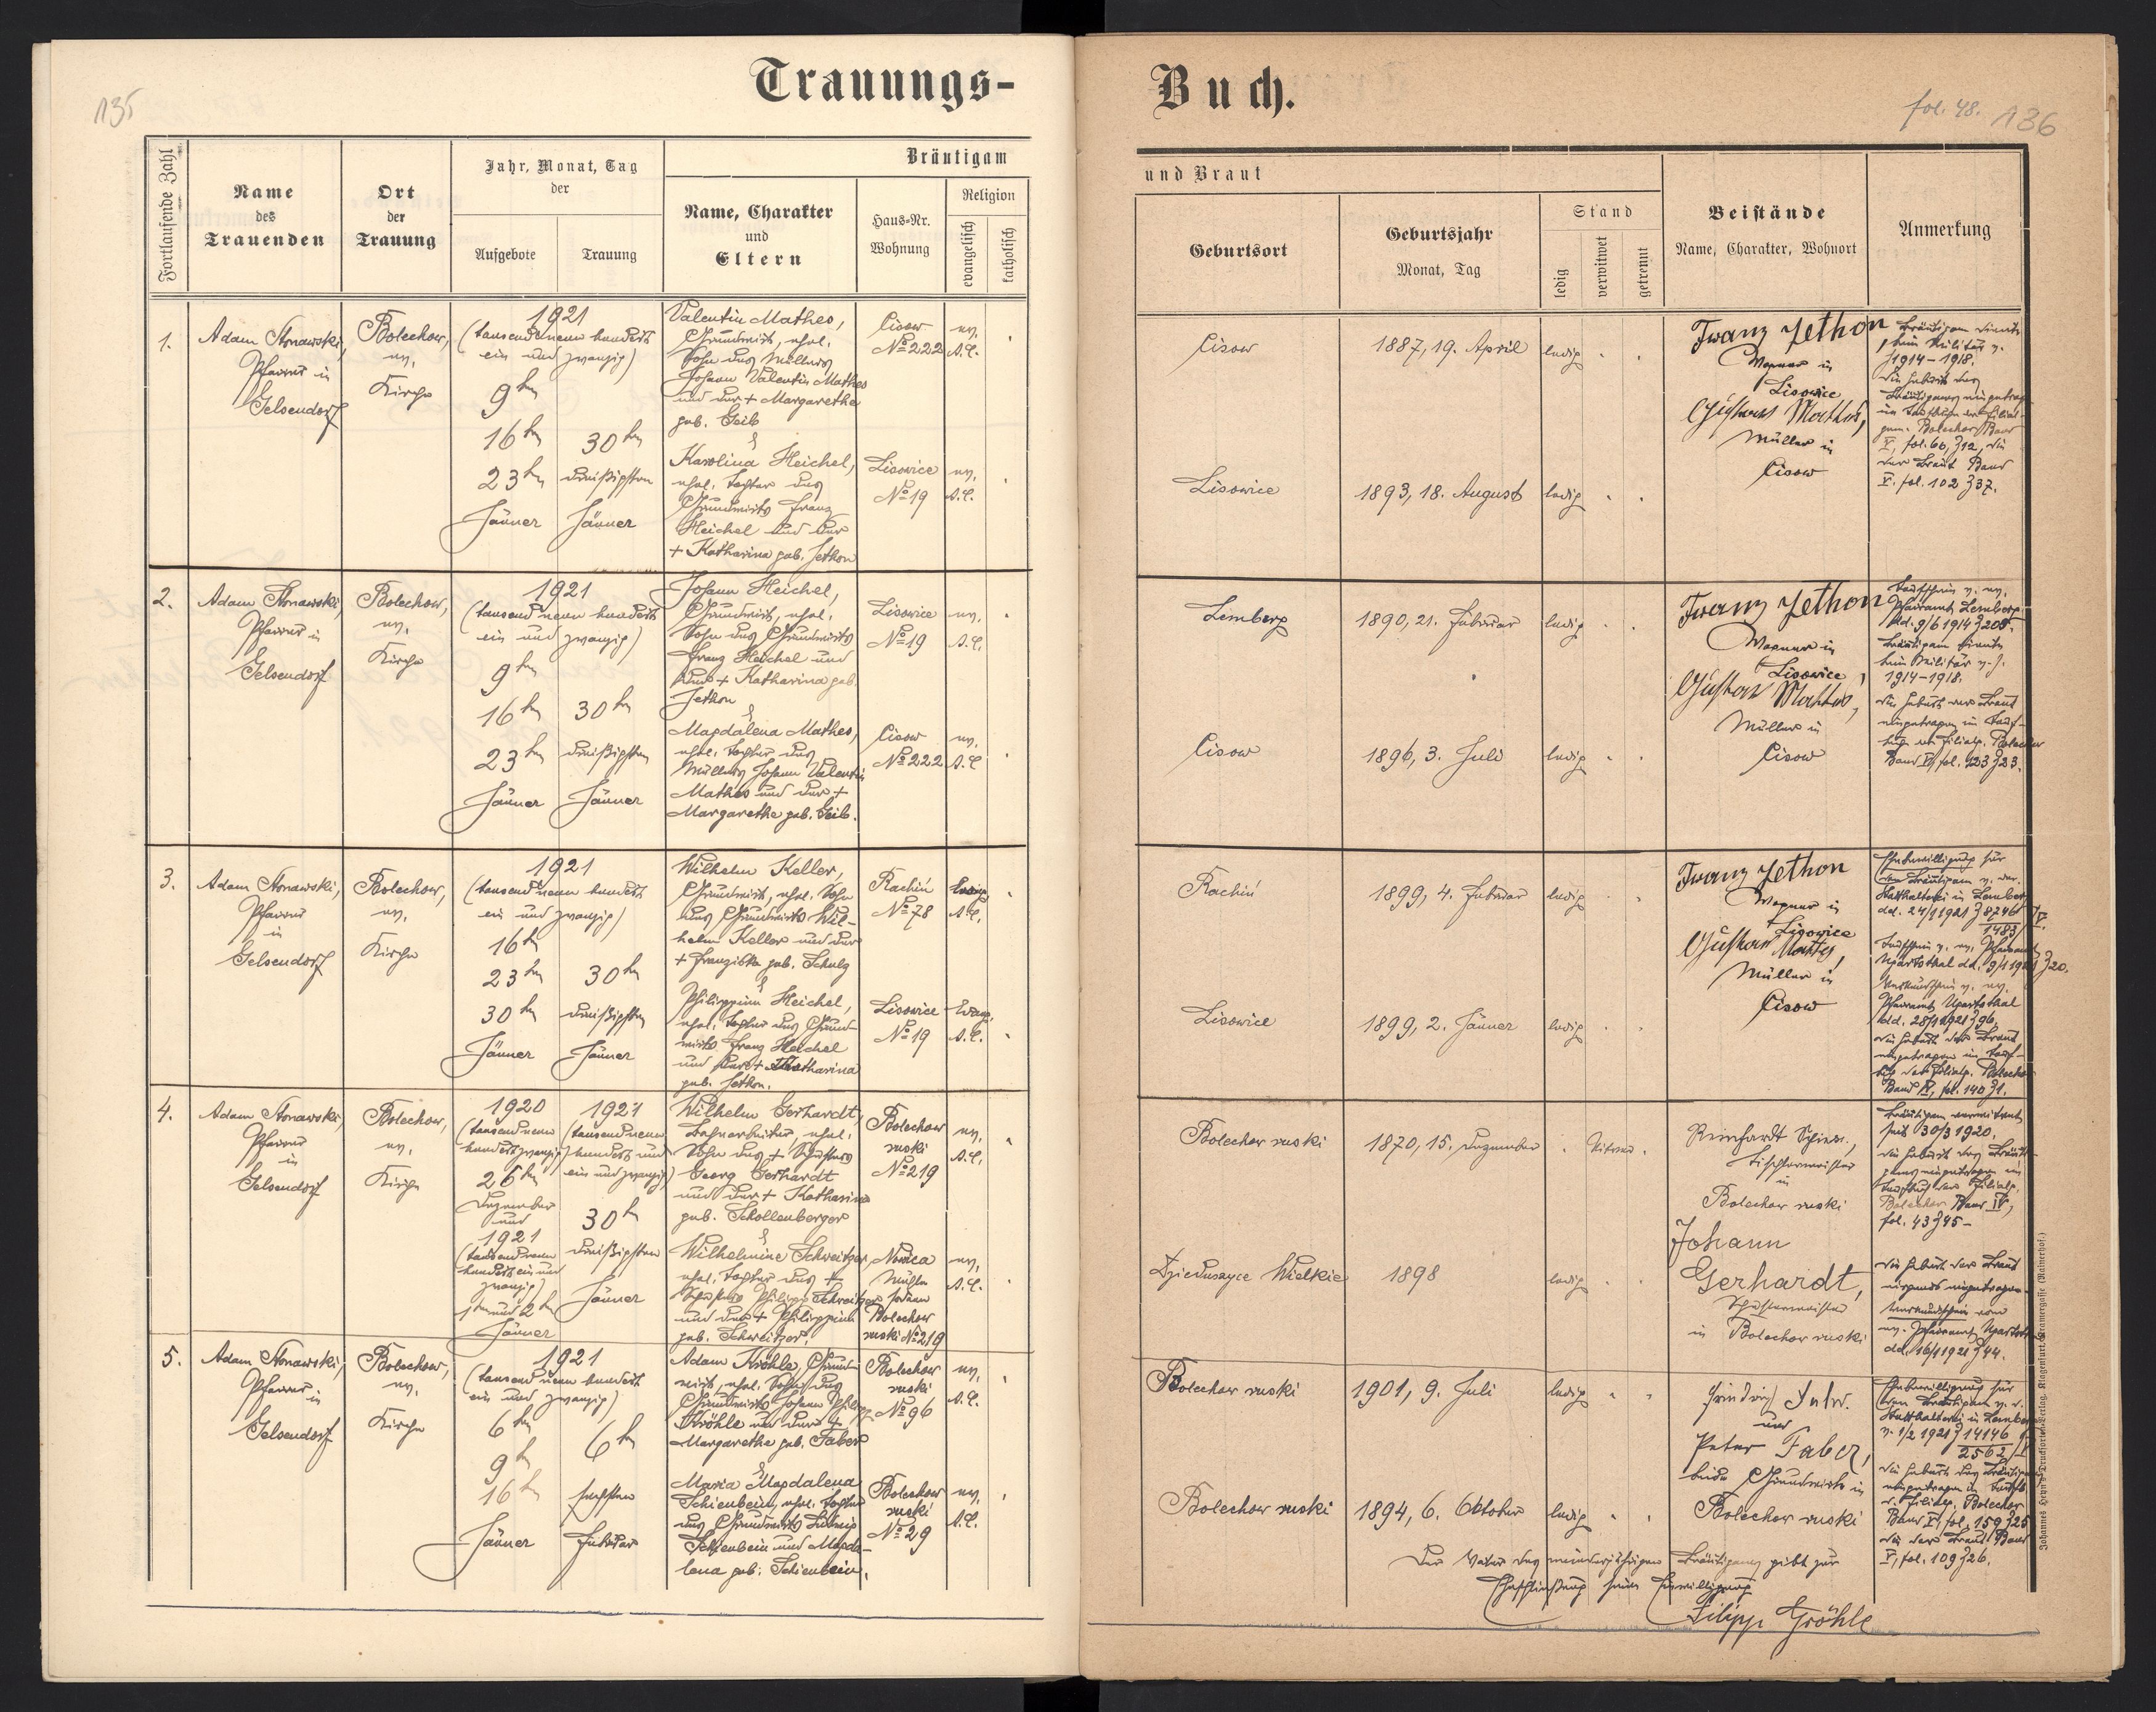 Trauungs-
135
Fortlaufende Zahl
Name
des
Trauenden
Ort
der
Trauung
Jahr, Monat, Tag
der
Aufgebote
Trauung
Bräutigam
Name, Charakter
und
Eltern
Haus-Nr.
Wohnung
Religion
evangelisch
katholisch
1.
Adam Stonawski,
Pfarrer in
Gelsendorf
Bolechow,
ev.
Kirche
1921
(tausend neun hundert
ein und zwanzig)
9ten
16ten
23ten
Jänner
30ten
dreißigsten
Jänner
Valentin Mathes,
Grundwirt, ehel.
Sohn des Müllers
Johann Valentin Mathes
und der + Margarethe
geb. Geib
&
Karolina Heichel,
ehel. Tochter des
Grundwirts Franz
Heichel und der
+ Katharina geb. Jethon
Cisow
№ 222
ev.
A.C.
Lisowice
№ 19
ev.
A.C.
2.
Adam Stonawski,
Pfarrer in
Gelsendorf
Bolechow,
ev.
Kirche
1921
(tausend neun hundert
ein und zwanzig)
9ten
16ten
23ten
Jänner
30ten
dreißigsten
Jänner
Johann Heichel,
Grundwirt, ehel.
Sohn des Grundwirts
Franz Heichel und
der + Katharina geb.
Jethon
&
Magdalena Mathes,
ehel. Tochter des
Müllers Johann Valentin
Mathes und der +
Margarethe geb. Geib.
Lisowice
№ 19
ev.
A.C.
Cisow
№ 222
ev.
A.C.
3.
Adam Stonawski,
Pfarrer
in
Gelsendorf
Bolechow,
ev.
Kirche
1921
(tausend neun hundert
ein und zwanzig)
16ten
23ten
30ten
Jänner
30ten
dreißigsten
Jänner
Wilhelm Keller,
Grundwirt, ehel. Sohn
des Grundwirts Wil-
helm Keller und der
+ Franziska geb. Schulz
&
Philippine Heichel,
ehel. Tochter des Grund-
wirts Franz Heichel
und der + Katharina
geb. Jethon.
Rachiń
№ 78
evang.
A.C.
Lisowice
№ 19
evang.
A.C.
4.
Adam Stonawski,
Pfarrer
in
Gelsendorf
Bolechow,
ev.
Kirche
1920
(tausend neun
hundert zwanzig)
26ten
Dezember
und
1921
(tausend neun
hundert ein und
zwanzig)
1ten und 2ten
Jänner
1921
(tausend neun
hundert und
ein und zwanzig)
30ten
dreißigsten
Jänner
Wilhelm Gerhardt,
ehel.
Sohn des + Schusters
Georg Gerhardt
und der + Katharina
geb. Schollenberger
&
Wilhelmine Schweitzer,
ehel. Tochter des +
Schusters Philipp Schweitzer
und der + Philippine
geb. Schweitzer.
Bolechow
ruski
№ 219
ev.
A.C.
Bolechow
ruski № 219
ev.
A.C.
5.
Adam Stonawski,
Pfarrer
in
Gelsendorf
Bolechow,
ev.
Kirche
1921
(tausend neun hundert
ein und zwanzig)
6ten
9ten
16ten
Jänner
6ten
sechsten
Februar
Adam Kröhle, Grund-
wirt, ehel. Sohn des
Grundwirts Johann Philipp
Kröhle und der +
Margarethe geb. Faber
&
Maria Magdalena
Schienbein, ehel. Tochter
des Grundwirts Ludwig
Schienbein und Magda-
lena geb. Schienbein.
Bolechow
ruski
№ 96
ev.
A.C.
Bolechow
ruski
№ 29
ev.
A.C.
Buch.
fol. 48.
136
und Braut
Geburtsort
Geburtsjahr
Monat, Tag
Stand
ledig
verwitwet
getrennt
Beistände
Name, Charakter, Wohnort
Anmerkung
Cisow
1887, 19. April
ledig
Lisowice
1893, 18. August
ledig
Franz Jethon
Wagner in
Lisowice
Gustav Mathes,
Müller in
Cisow
Bräutigam diente
beim Militär v.
J 1914-1918.
Die Geburt des
Bräutigams eingetragen
im Taufbuche der Filial-
gem. Bolechow Band
V, fol. 60, Z 12, die
der Braut Band
V. fol. 102 Z 37.
Lemberg
1890, 21. Februar
ledig
Cisow
1896, 3. Juli
ledig
Franz Jethon
Wagner in
Lisowice,
Gustav Mathes,
Müller in
Cisow
Taufschein v. ev.
Pfarramt Lemberg
dd. 9/6 1914 Z 205.
Bräutigam diente
beim Militär v. J.
1914-1918.
Die Geburt der Braut
eingetragen im Tauf-
buche der Filialg. Bolechow
Band V, fol. 123 Z 23.
Rachiń
1899, 4. Februar
ledig
Lisowice
1899, 2. Jänner
ledig
Franz Jethon
Wagner in
Lisowice
Gustav Mathes,
Müller in
Cisow
Ehebewilligung für
den Bräutigam v. der
Statthalterei in Lemberg
dd. 24/1 1921 Z 8746/IV.
1483
Taufschein v. ev. Pfarramt
Ugartsthal dd. 9/1 1921 Z 20.
Verkündschein v. ev.
Pfarramt Ugartsthal
dd. 28/1 1921 Z 96.
Die Geburt der Braut
eingetragen im Tauf-
buche der Filialg. Bolechow
Band V, fol. 140 Z 1.
Bolechow ruski
1870, 15. Dezember
Witwer
Dzieduszyce Wielkie
1898
ledig
Tischlermeister
in
Bolechow ruski
Johann
Gerhardt,
Schustermeister
in Bolechow ruski
Bräutigam verwitwet
seit 30/3 1920.
Die Geburt des Bräuti-
gams eingetragen im
Taufbuch der Filialg.
Bolechow Band IV,
fol. 43 Z 45-
Die Geburt der Braut
nirgends eingetragen.
Verkündschein vom
ev. Pfarramt Ugartsthal
dd. 16/1 1921 Z 44.
Bolechow ruski
1901, 9. Juli
ledig
Bolechow ruski
1894, 6. Oktober
ledig
und
Peter Faber,
beide Grundwirte in
Bolechow ruski
Ehebewilligung für
den Bräutigam v. d.
Statthalterei in Lemberg
v. 1/2 1921 Z 14146
2562
Die Geburt des Bräutigams
eingetragen im Taufb.
d. Filialg. Bolechow
Band V, fol. 159 Z 25
die der Braut Band
V, fol. 109 Z 26.
Der Vater des minderjährigen Bräutigams gibt zur
Eheschließung seine Einwilligung
Filipp Gröhle
Johannes Heyn's Drucksorten-Verlag, Klagenfurt, Kramergasse (Rainerhof.)